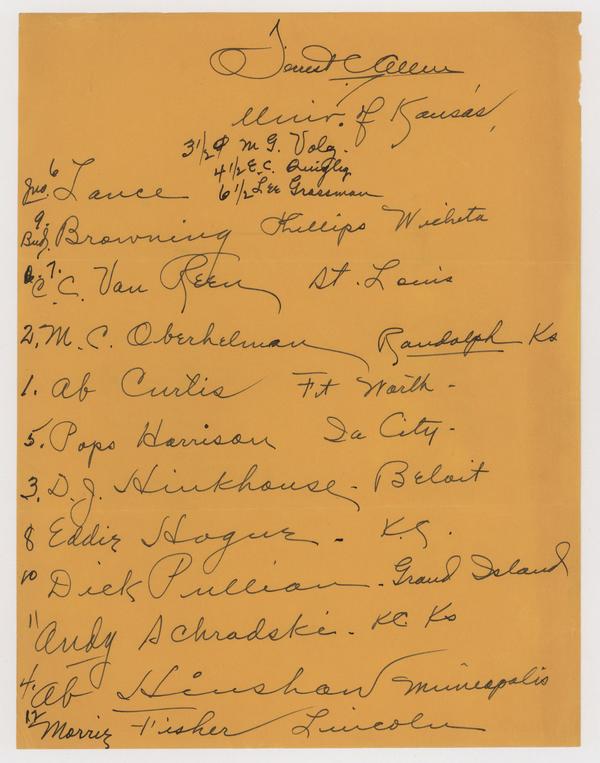 Forrest C Allen
Univ. of Kansas,
3½ M G. Volz.
4½ E. C. Quigley
6½ Lee Grossman
6 Jno. Lance
9. Bud. Browning Phillips Wichita
7. C. C. Van Reen St. Louis
2. M. C. Oberhelman Randolph Ks
1. Ab Curtis Ft Worth -
5. Pops Harrison Ia City -
3. D. J. Hinkhouse - Beloit
8 Eddie Hogue - K.C.
10 Dick Pullian - Grand Island
11 Andy Schradski - KC Ks
4. Ab Hinshaw Minneapolis
12 Morris Fisher Lincoln